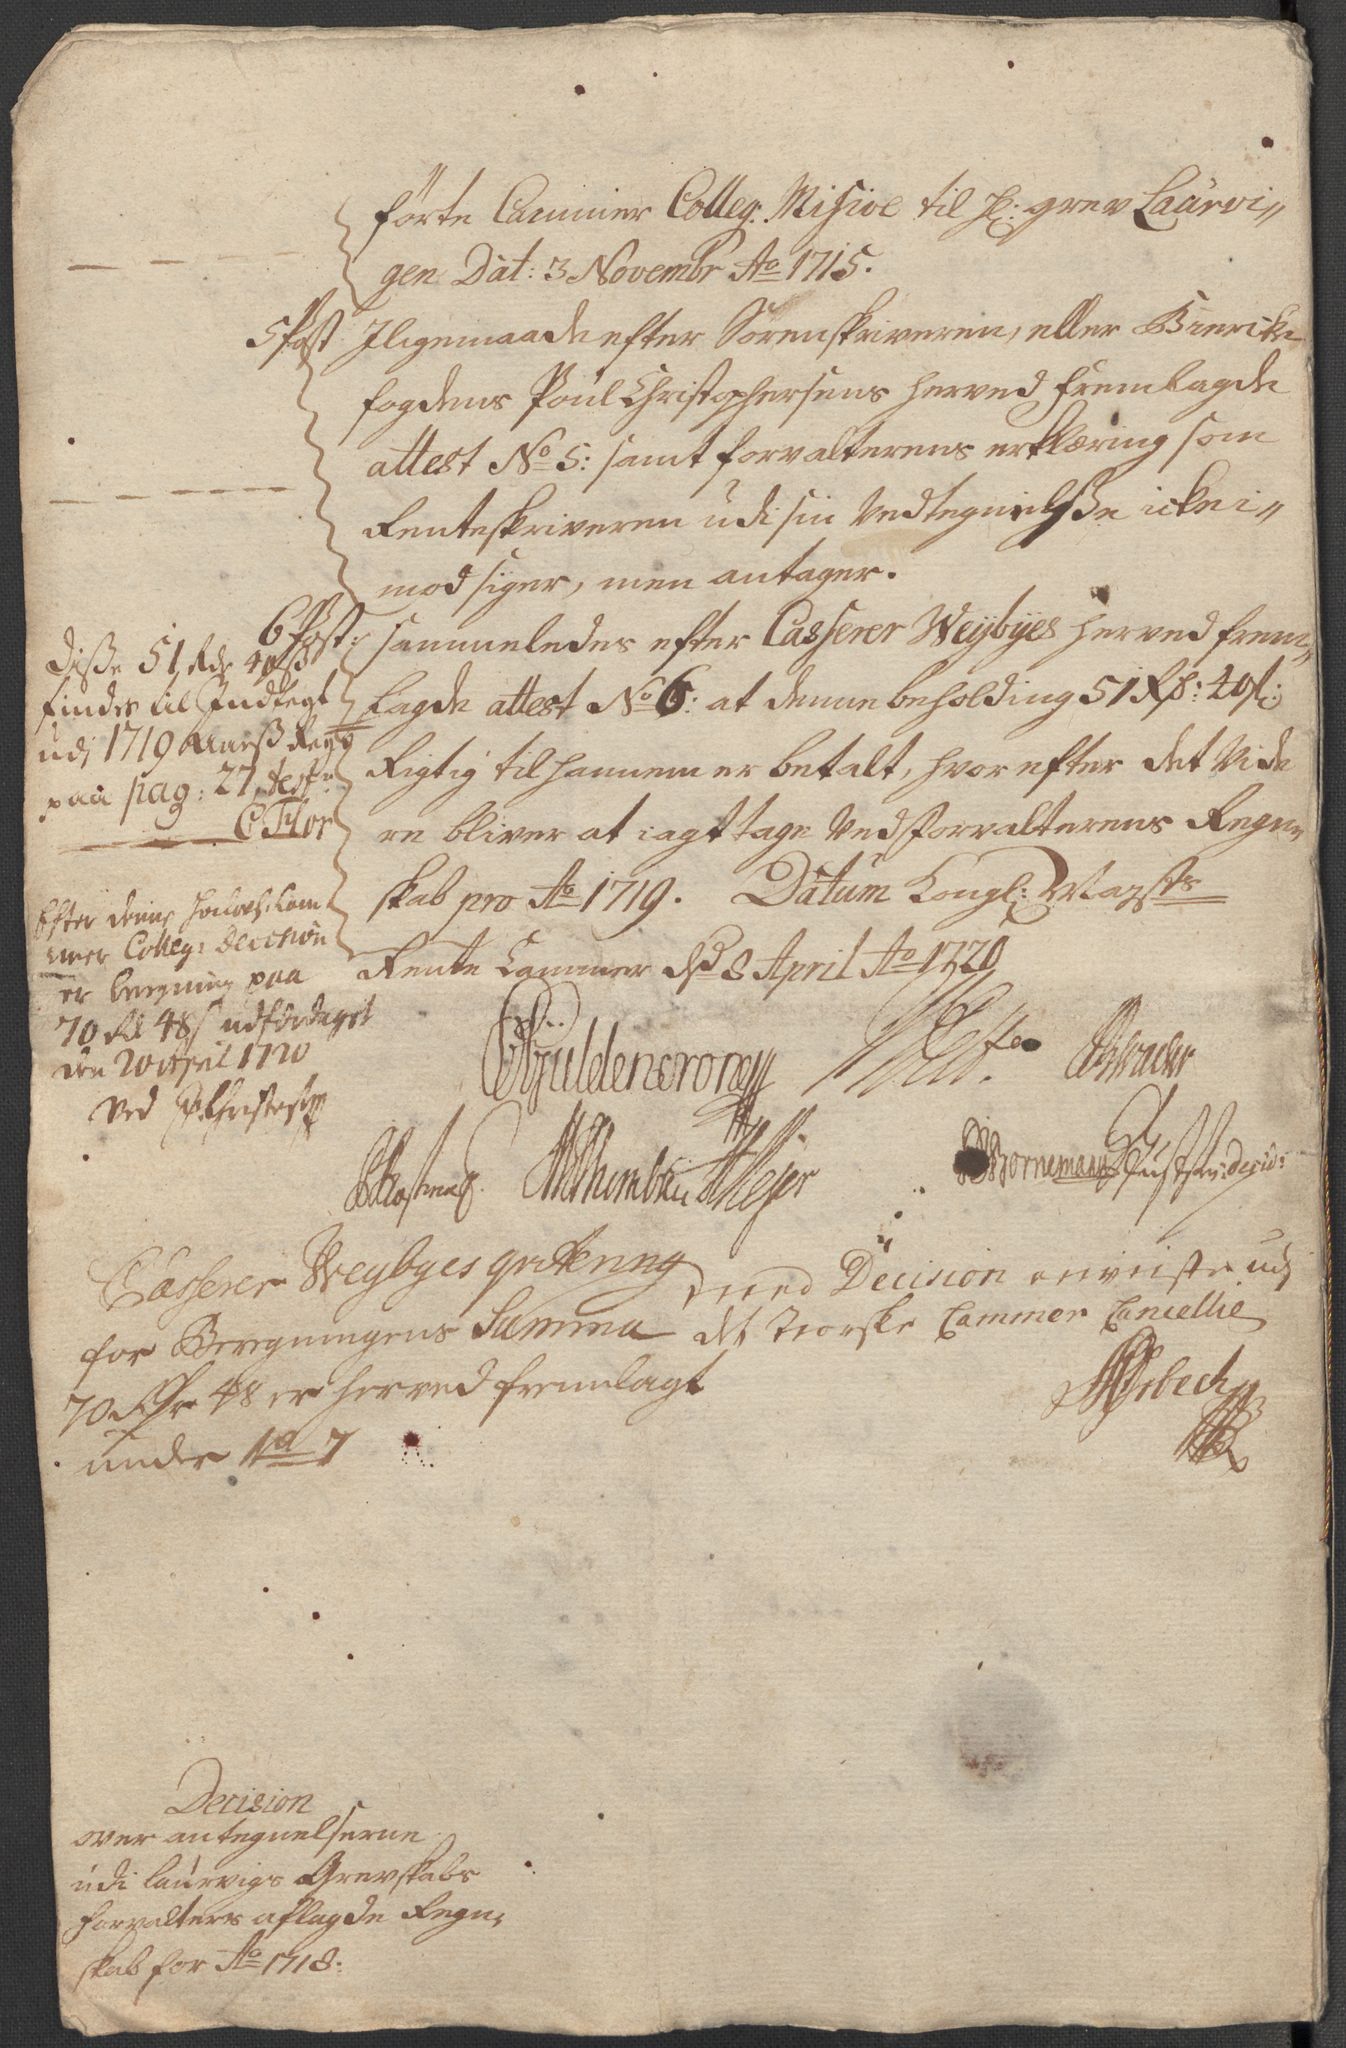 förte Cammer Colleg: Misive til H: grev Laürvi„
gen Dat: 3 Novembr Ao 1715.
5 Post Iligemaade efter Sorenskriveren, eller Bierike
fogdens Poül Christophersens herved fremlagde
attest No 5: samt forvalterens erklæring som
Renteskriveren udi sin Vedtegnelsse icke i„
mod siger, men antager.
6 Post: sammeledes efter Casserer Weybyes herved frem„
lagde attest No 6: at denne beholding 51 Rd: 40 s:
Rigtig til hannem er betalt, hvor efter det Vide
re bliver at iagttage Ved forvalterens Regn„
skab pro Ao 1719. Datum Kongl: Maysts
Rente Cammer d 8 April Ao 1720
disse 51 Rdr 40 s
findes til Indtegt
udj 1719 Aars Regn
paa pag: 27,
C Flor
Efter denne høilovl: Cam
mer Colleg: Decision
er beregning paa
70 Rd 48 s udferdiget
den 20 April 1720
Ved P: Christens
Güldencrone
W Bornemann
Meyer
Casserer Weybyes qvittering
for Beregningens Summa
70 Rdr 48 er herved fremlagt
under No 7
med Decision eenviiste udj
det Norske Cammer Cancellie
Decision
over antegnelserne
udi laürvigs Grevskabs
forvalters aflagde Regn„
skab for Ao 1718.